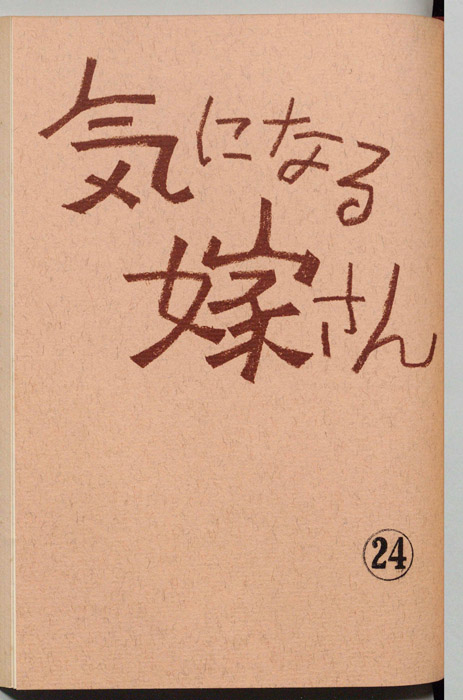 気になる
嫁さん
24